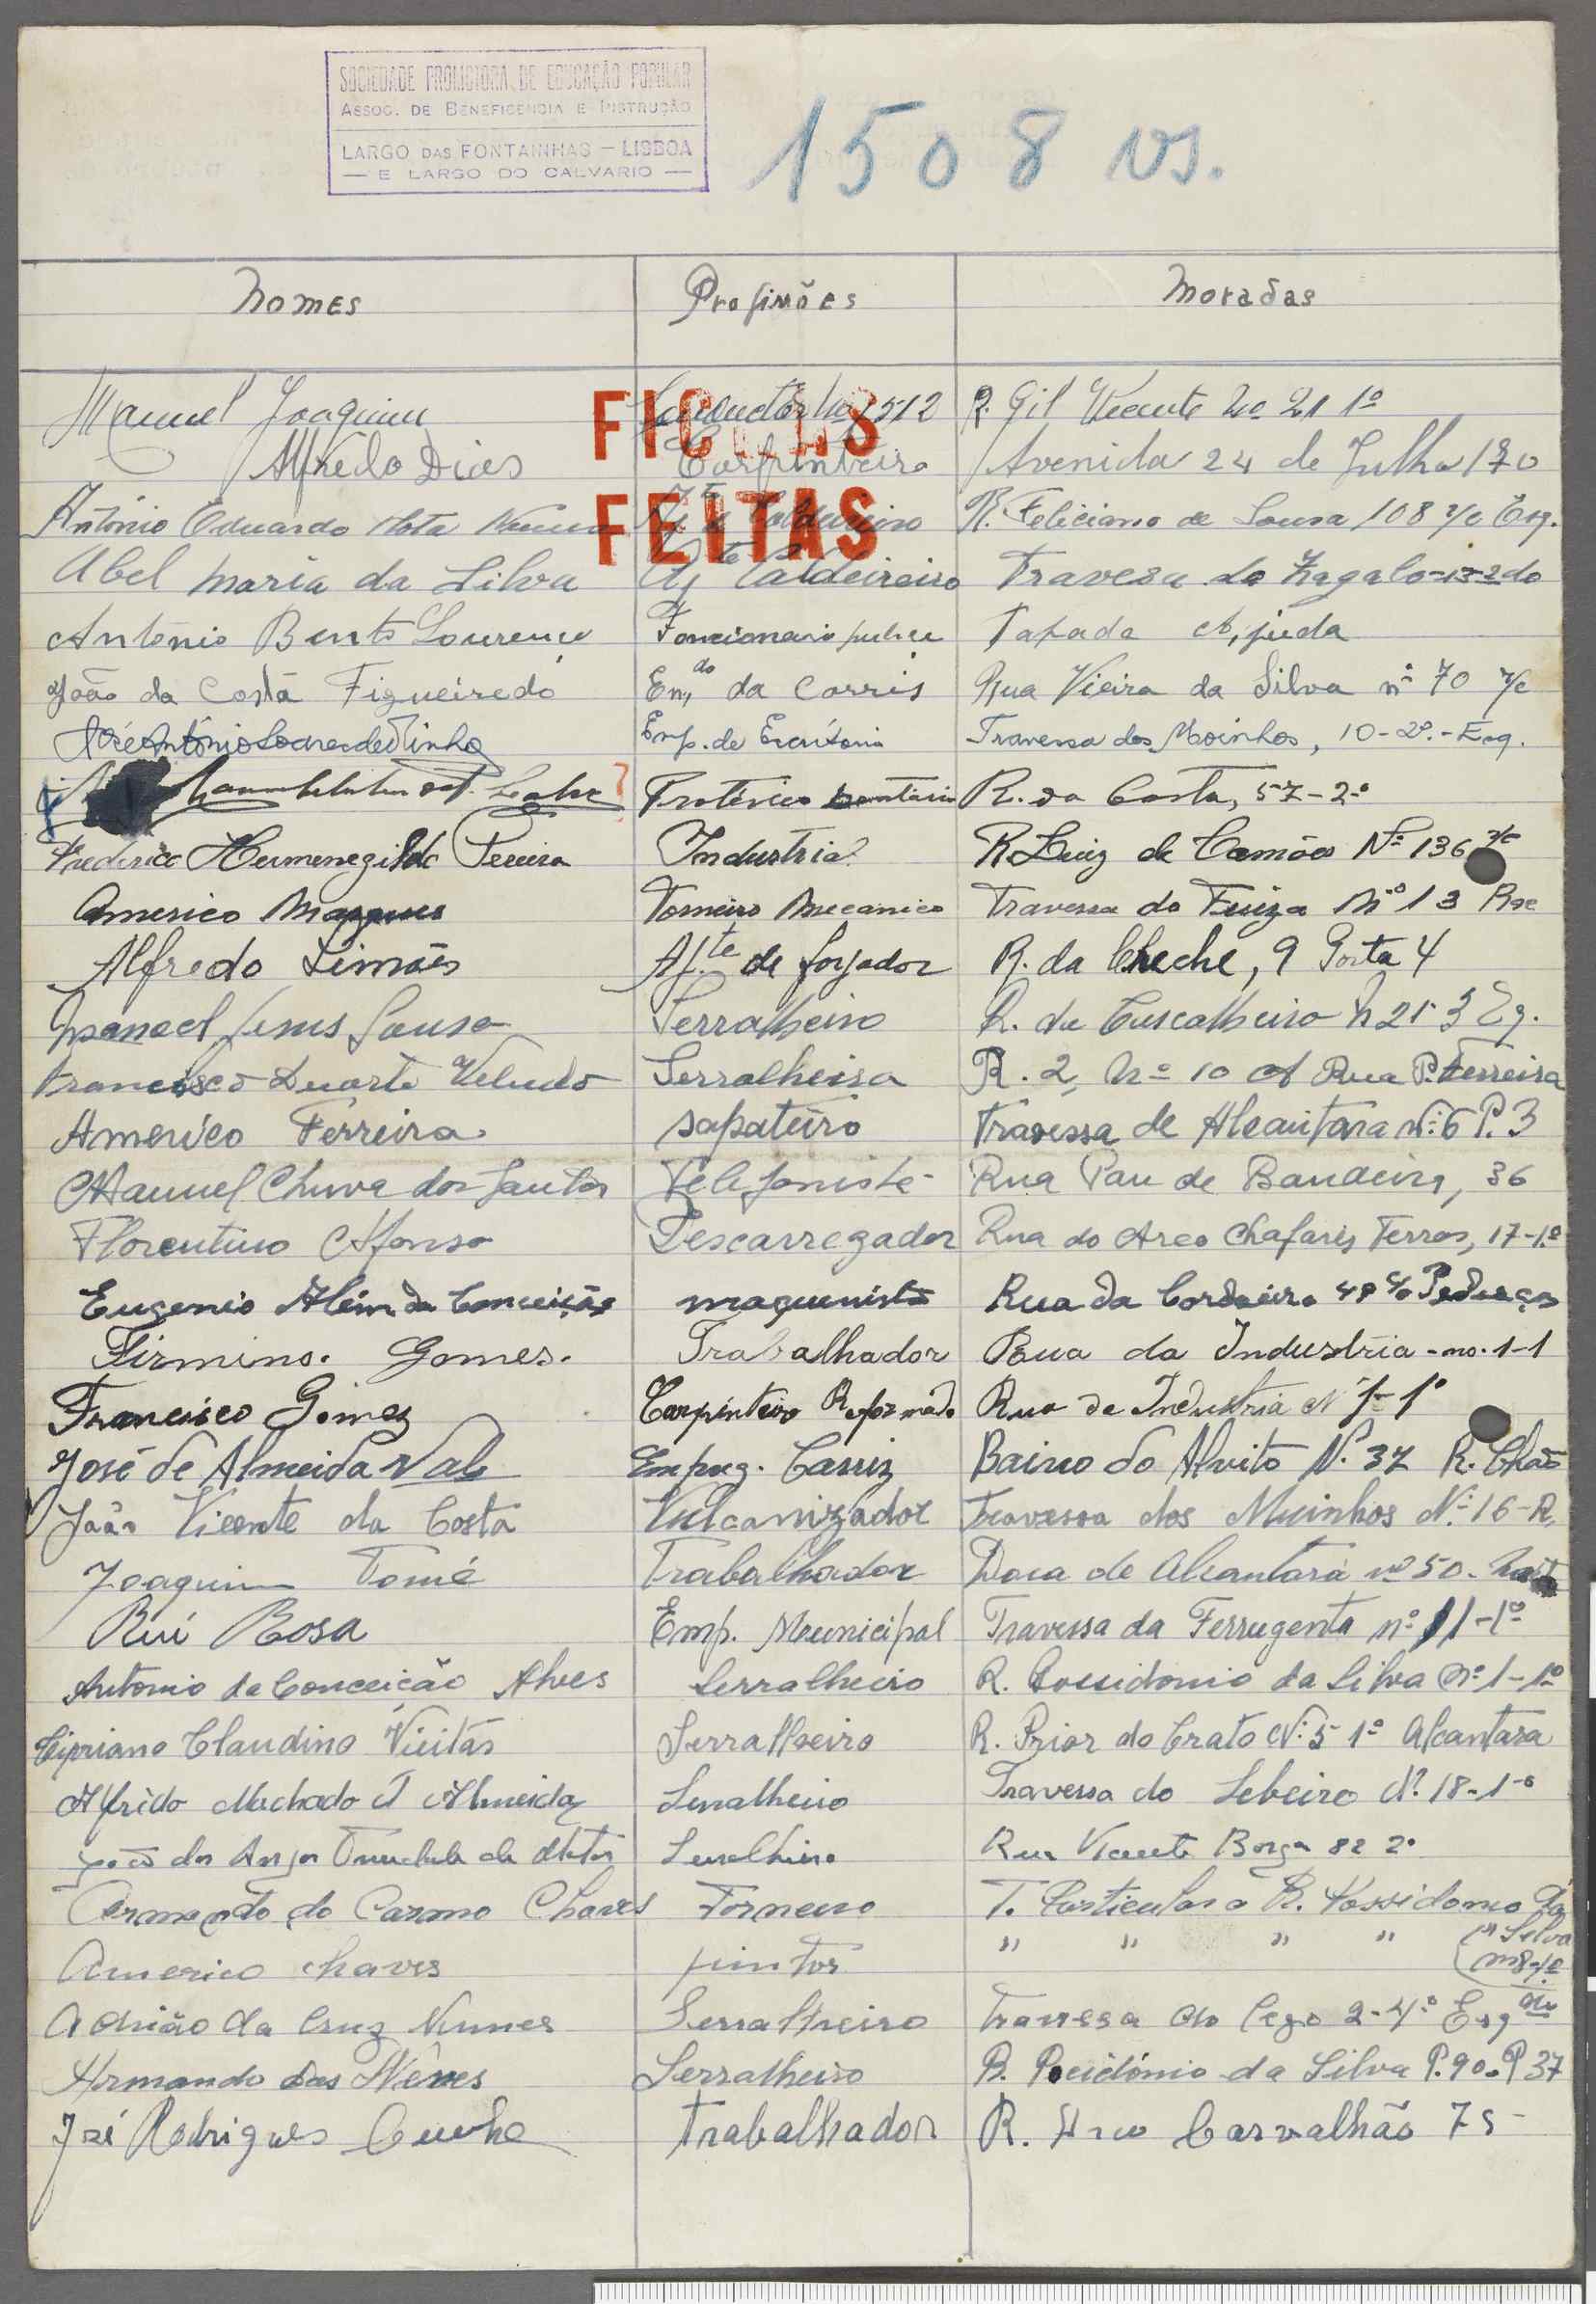 SOCIEDADE PROMOTORA DE EDUCAÇÃO POPULAR
ASSOC. DE BENEFICENCIA E INSTRUÇÃO
LARGO DAS FONTAINHAS — LISBOA
— E LARGO DO CALVARIO —
1508 vs.
Nomes Profissões Moradas
FICHAS
FEITAS
Manuel Joaquim Conductor No 1512 R. Gil Vicente No 21 1º
Alfredo Dias Carpinteiro Avenida 24 de Julho 170
António Eduardo Mota Aj.te Caldeireiro R. Feliciano de Sousa 108 r/c Esq.
Abel Maria da Silva Aj.te Caldeireiro Travesa do Zagalo-13-2do
António Bento Lourenço Foncionario Tapada Ajuda
João da Costa Figueiredo En,do da Carris Rua Vieira da Silva nº 70 r/c
José António Soares de Pinho Emp. de Escritorio Travessa dos Moinhos, 10-2º.-Esq.
Protésico R. da Costa, 57-2.º
Frederico Hermenegildo Pereira Industrial R Luiz de Camões Nº 136 r/c
Americo Marques Torneiro Mecanico Travessa do Fiuza Nº 13
Alfredo Simões Aj.te de forjador R. da Creche, 9 Porta 4
Manoel Jesus Sousa Serralheiro R. da Cascalheira N 21 3 Eg.
Francisco Duarte Veludo Serralheiro R. 2, Nº 10 A Rua P. Ferreira
Americo Ferreira sapateiro Travessa de Alcantara Nº 6 P. 3
Manuel Chuva dos Santos Telefonista Rua Pau de Bandeira, 36
Florentino Afonso Descarregador Rua do Arco Chafaris Terras, 17-1.º
Eugenio Além da Conceição maquenista Rua da Cordoeira 48
Firmino. Gomes. Trabalhador Rua da Industria - no. 1-1
Francisco Gomez Carpinteiro Reformado Rua da Industria Nº 1-1º
José de Almeida Vale Empreg. Carriz Bairro do Alvito Nº. 37 R. Chão
João Vicente da Costa Vulcanizador Travessa dos Muinhos Nº 16-R.
Joaquim Tomé Trabalhador Doca de Alcantara nº 50.
Rui Rosa Emp. Municipal Travessa da Ferrugenta nº 11-1º
Antonio da Conceição Alves Serralheiro R. Possidonio da Silva Nº 1-1º
Cipriano Claudino Vieitas Serralheiro R. Prior do Crato Nº 5 1º Alcantara
Alfrido Machado d'Almeida Serralheiro Travessa do Sebeiro Nº 18-1º
João dos Anjos de Matos Serralheiro Rua Vicente Borga 82 2º
Armando do Carmo Chaves Torneiro T. Particular á R. Possidonio da
Americo Chaves pintor " " " " Silva
Adrião da Cruz Nunes Serralheiro Travessa do Cego 2-4º Esq
Armando das Nêves Serralheiro R. Pocidónio da Silva P. 90-P 37
José Rodrigues Cunha Trabalhador R. Arco Carvalhão 75